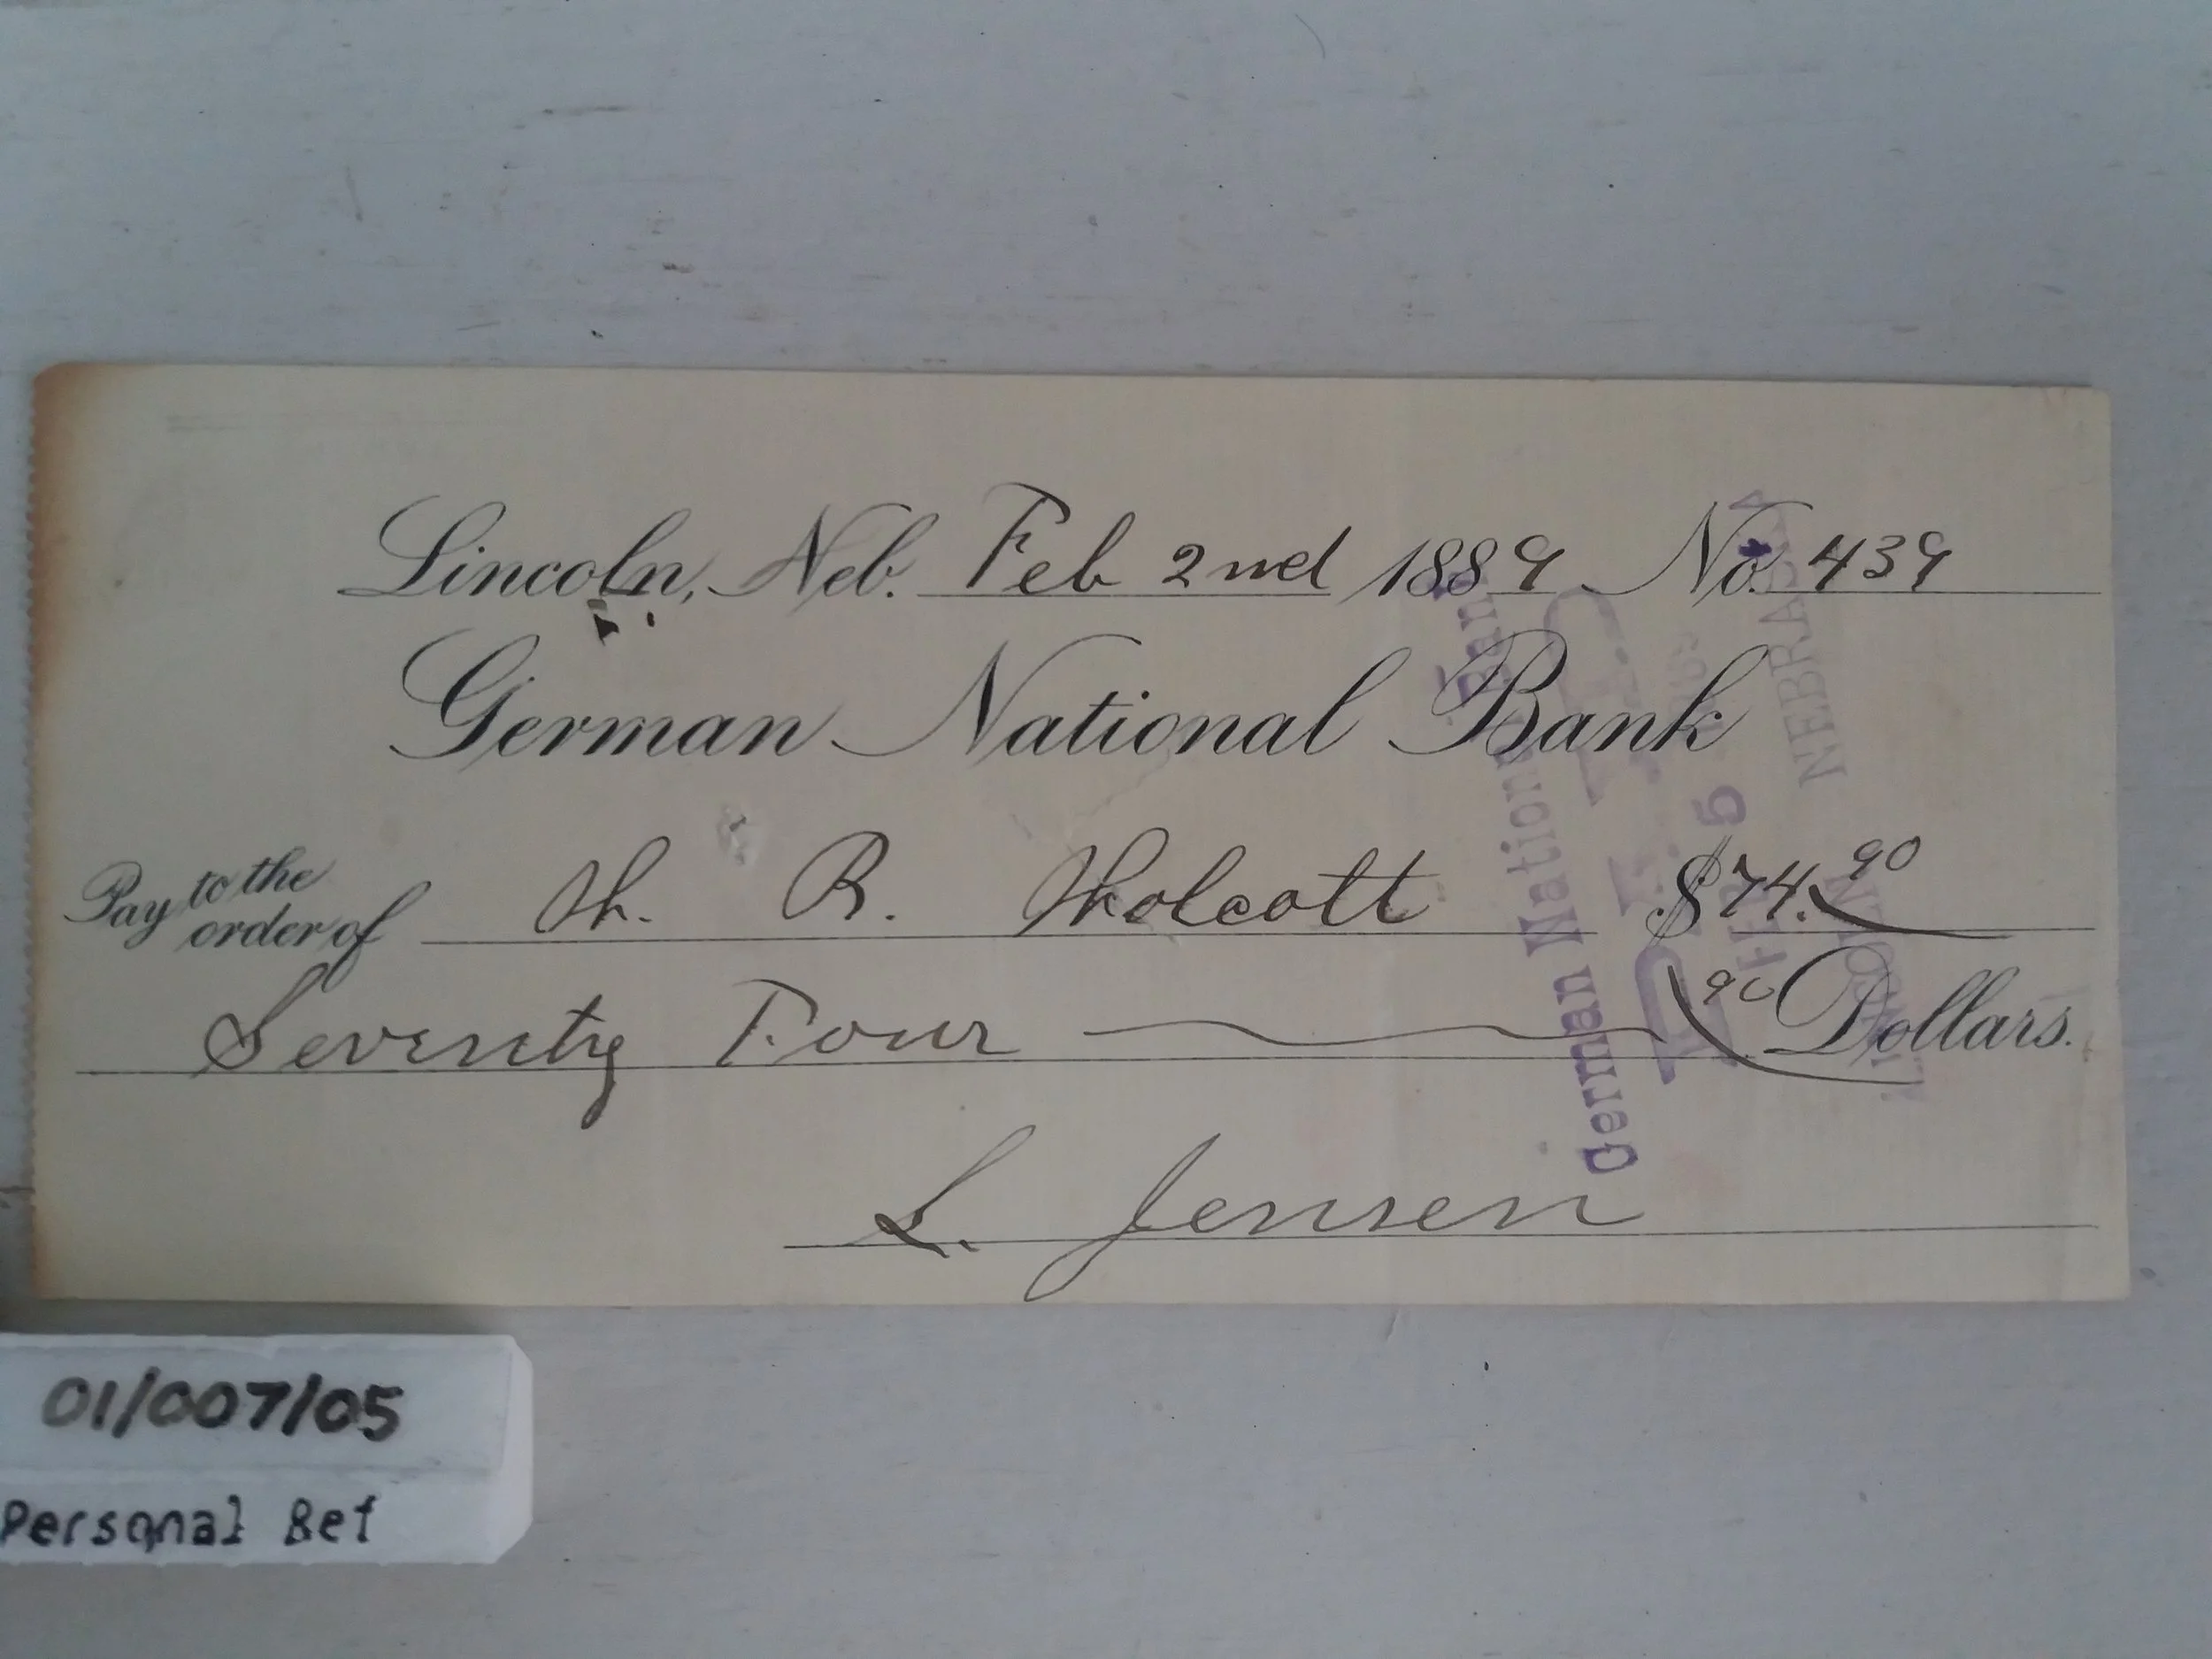 Lincoln, Neb. Feb 2nd 1889 No. 439
German National Bank
Pay to the order of H. R. Wolcott $74.90
Seventy Four 90 Dollars.
L. Jensen
German National Bank
PAID
FEB 5
LINCOLN NEBRASKA
01/007/05
Personal Bef